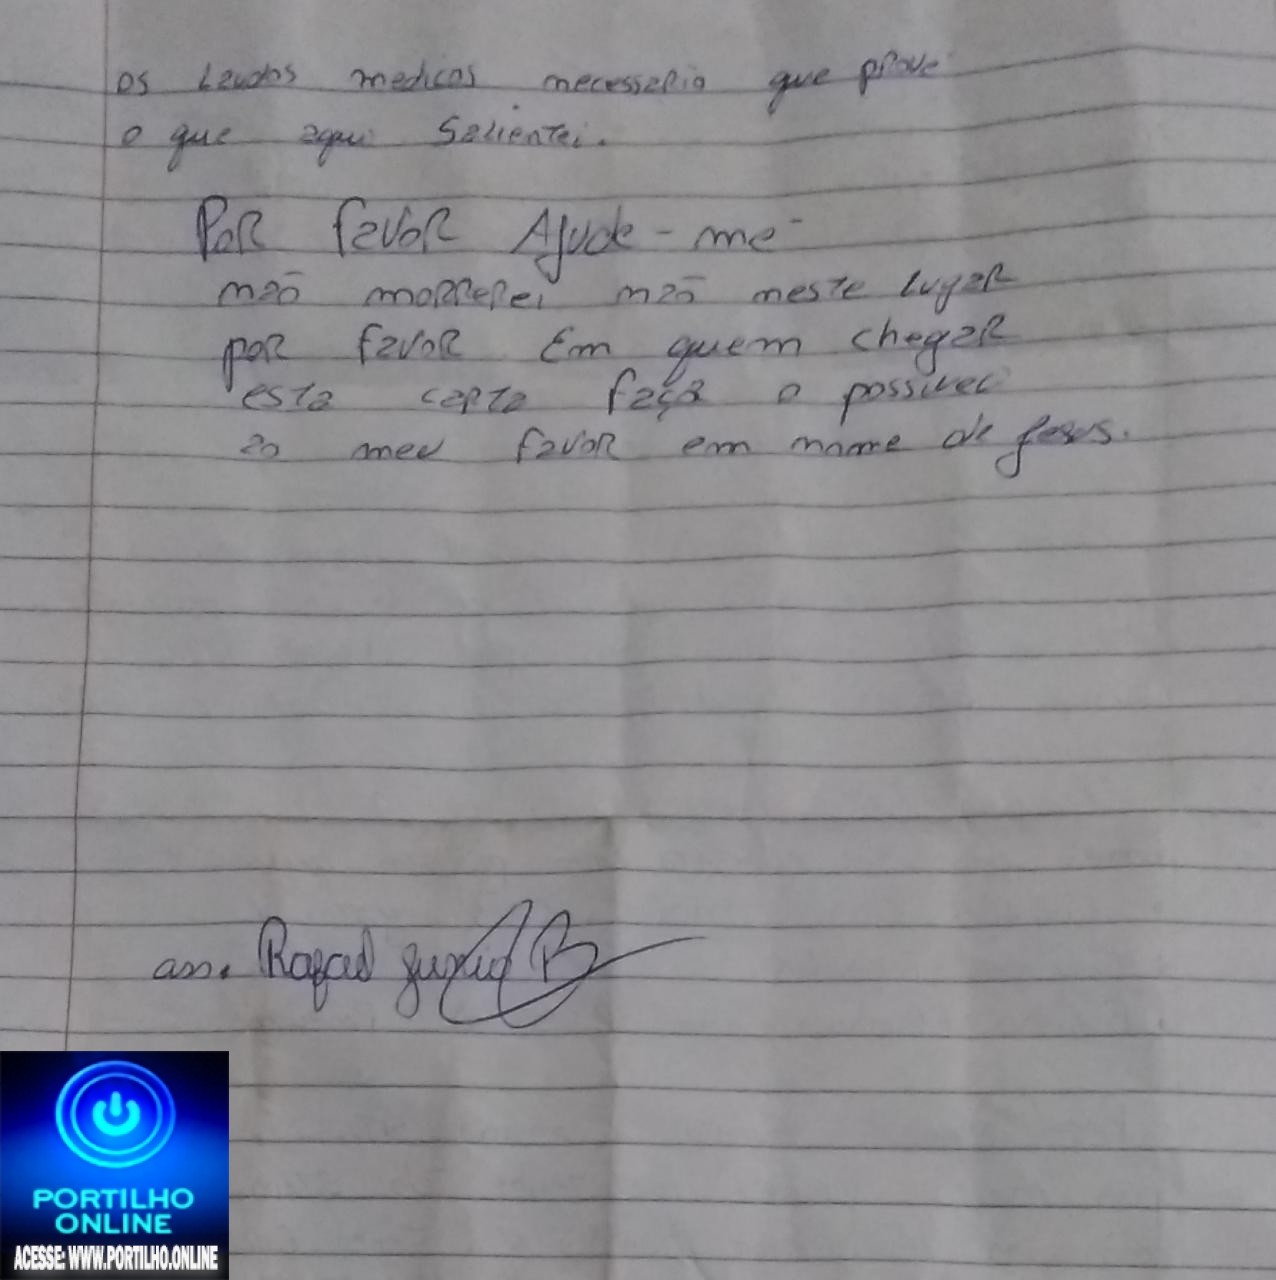 os Laudos medicos necessario que prove
o que aqui Salientei.
Por favor Ajude-me
não morrerei não neste lugar
por favor Em quem chegar
esta carta faça o possivel
ao meu favor em nome de Jesus.
ass. Rafael Junio B
PORTILHO
ONLINE
ACESSE: WWW.PORTILHO.ONLINE